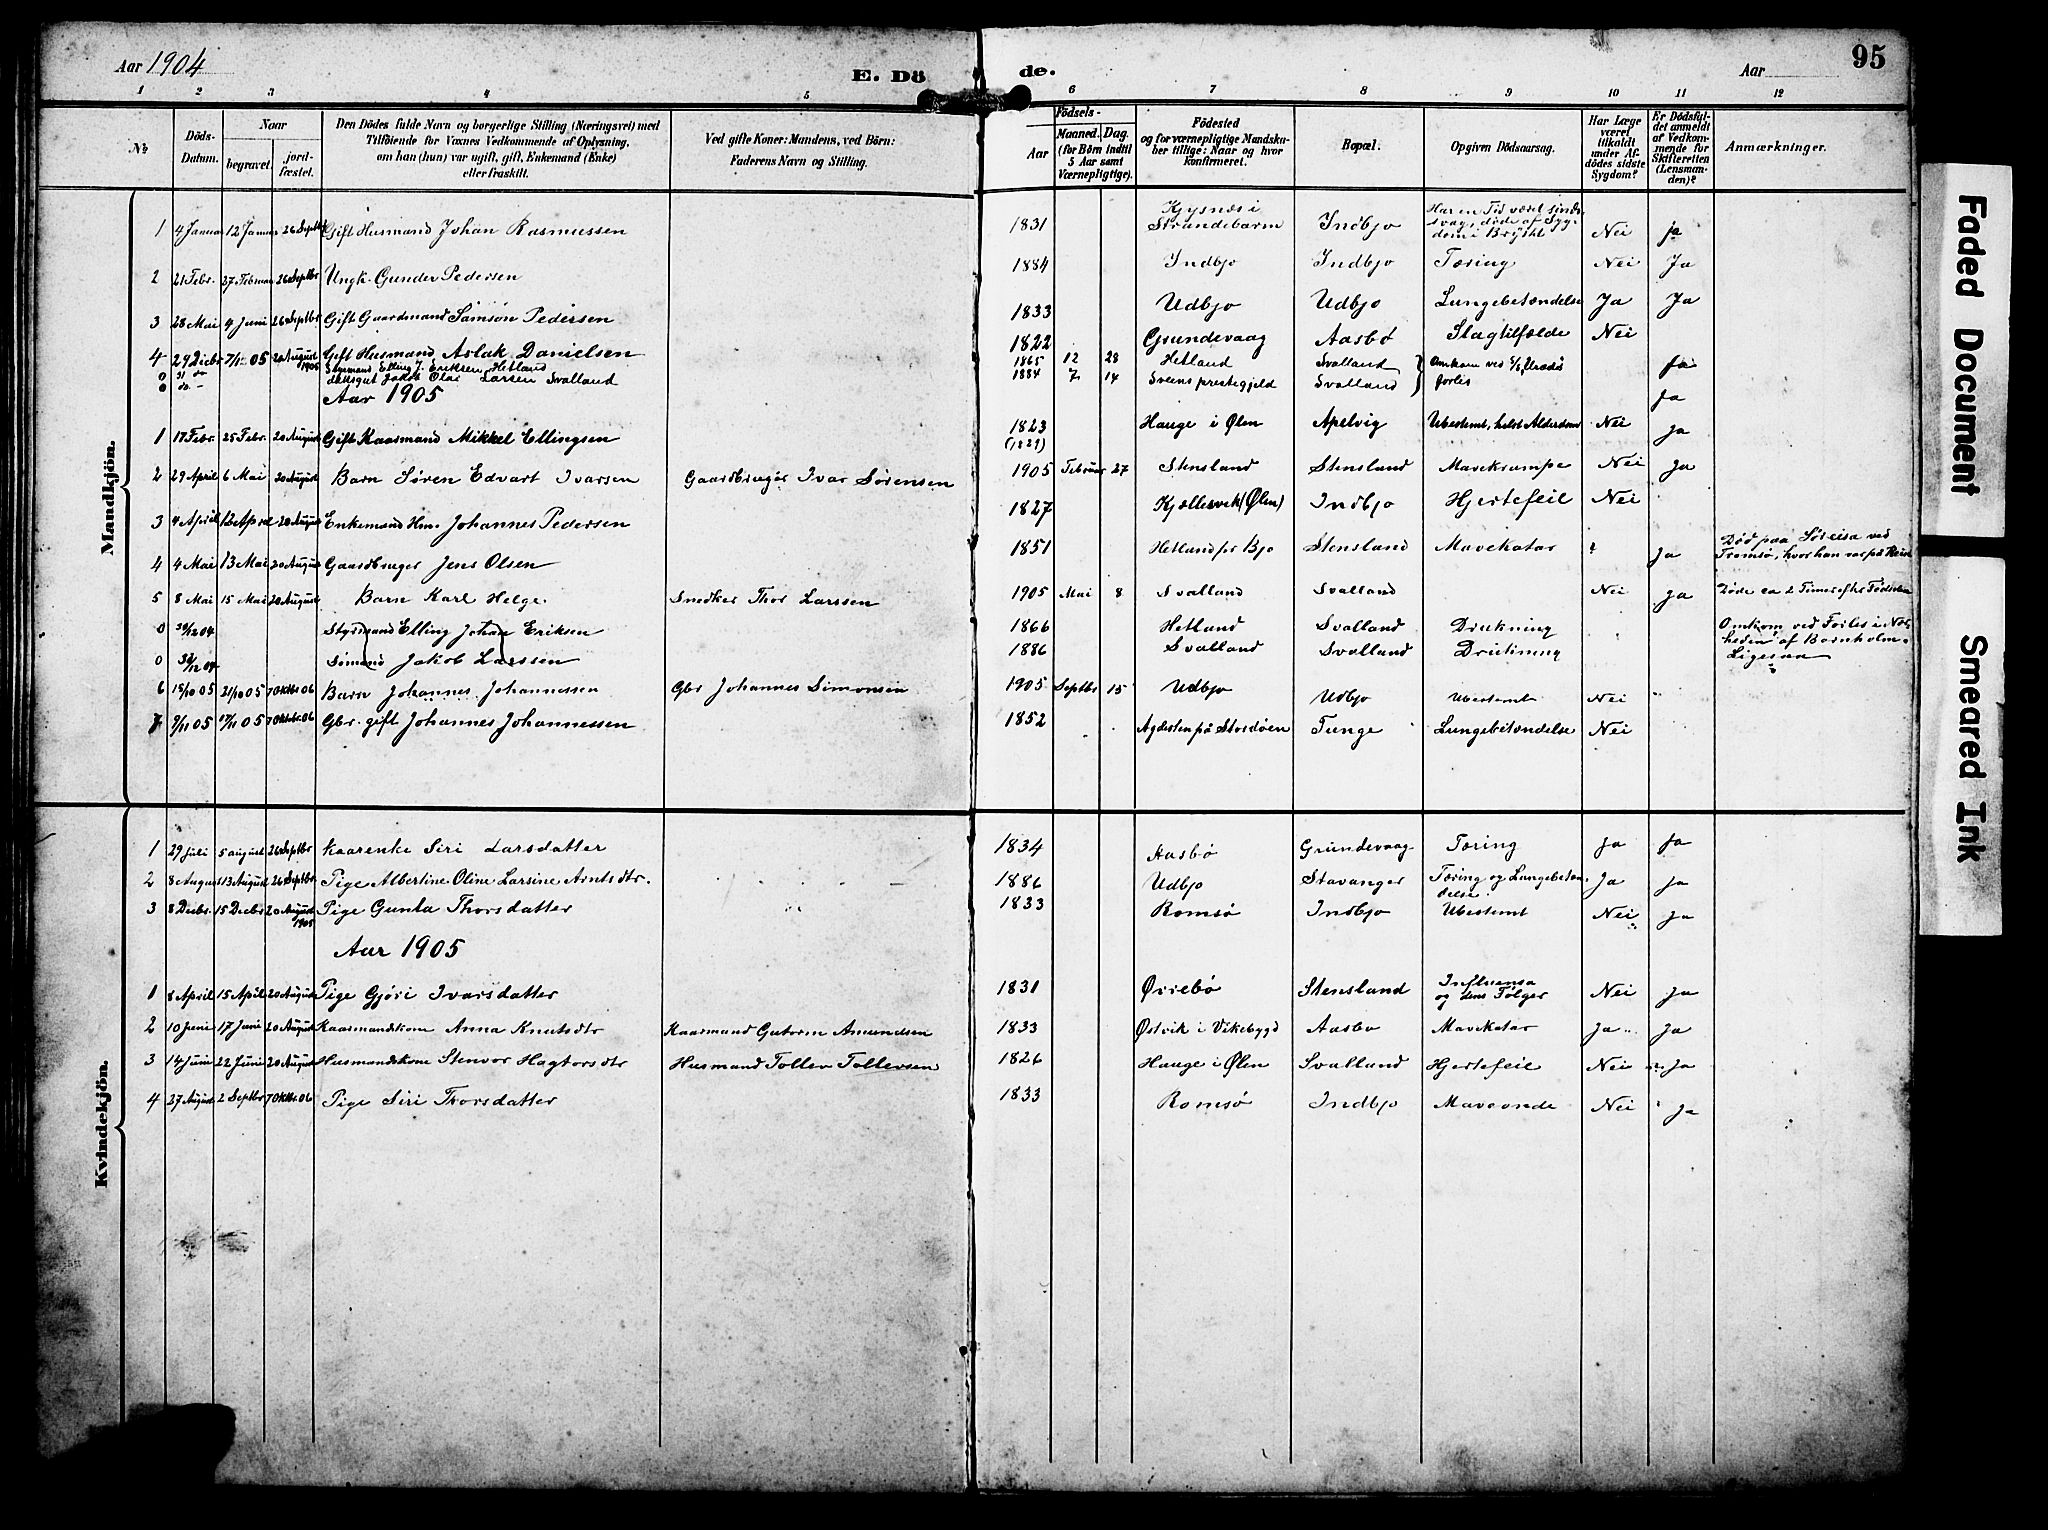 Aar 1904
E. Dö
de.
Aar
95
1 2 3 4 5 6 7 8 9 10 11 12
№
Döds-
Datum.
Naar
begravet.
jord-
fæstet.
Den Dödes fulde Navn og borgerlige Stilling (Næringsvei) med
Tilföiende for Voxnes Vedkommende af Oplysning,
om han (hun) var ugift, gift, Enkemand (Enke)
eller fraskilt.
Ved gifte Koner: Mandens, ved Börn:
Faderens Navn og Stilling.
Födsels-
Aar
Maaned.
Dag.
(for Börn indtil
5 Aar samt
Værnepligtige).
Födested
og for værnepligtige Mandskaber tillige: Naar og hvor
konfirmeret.
Bopæl.
Opgiven Dödsaarsag.
Har Læge
været
tilkaldt
under Afdödes sidste
Sygdom?
Er Dödsfaldet anmeldt
af Vedkommende for
Skifteretten
(Lensmanden)?
Anmærkninger.
Mandkjön.
1 4 Januar 12 Januar 26 Septbr Gift Husmand Johan Rasmussen 1831 Kysnes i Strandebarm Indbjo Har en Tid været sindssvag, døde af Sygdom i Bryst Nei ja
2 21 Febr. 27 Februar 26 Septbr Ungk. Gunder Pedersen 1884 Indbjo Indbjo Tæring Nei Ja
3 28 Mai 4 Juni 26 Septbr Gift Gaardmand Samson Pedersen 1833 Udbjo Udbjo Lungebetændelse Ja Ja
4 29 Decbr 7/1 05 20 August 1905 Gift Husmand Aslak Danielsen 1822 Grundevaag Aasbø Slagtilfælde Nei
0 31 do Styrmand Elling J. Eriksen Hetland 1865 12 28 Hetland Svalland Omkom ved S/S forlis ja
0 do - Jakob Olai Larsen Svalland 1884 7 14 Sveens prestegjeld Svalland ja
Aar 1905
1 17 Febr. 25 Febr. 20 August Gift Kaarmand Mikkel Ellingsen 1823 (1829) Hauge i Ølen Apelvig Ubestemt, helst Alderdom Nei ja
2 29 April 6 Mai 20 August Barn Søren Edvart Ivarsen Gaardbruger Ivar Sørensen 1905 Februar 27 Stensland Stensland Mavekrampe Nei ja
3 4 April 12 April 20 August Enkemand Hm. Johannes Pedersen 1827 Kjællesvik (Ølen) Indbjo Hjertefeil Nei
4 4 Mai 13 Mai 20 August Gaardbruger Jens Olsen 1851 Hetland pr Bjo Stensland Mavekatar ? ja Død paa Søreisa ved Tromsø, hvor han var på Reise
5 8 Mai 15 Mai 20 August Barn Karl Helge Snedker Thor Larssen 1905 Mai 8 Svalland Svalland Nei ja Døde ca 2 Timer efter Fødselen
0 30/12 04 Styrmand Elling Johan Eriksen 1866 Hetland Svalland Drukning Omkom ved Forlis i Nærheden af Bornholm.
0 30/12 04 Sømand Jakob Larssen 1886 Svalland Svalland Drukning Ligesaa
6 15/10 05 21/10 05 7 Oktbr. 06 Barn Johannes Johannessen Gbr Johannes Simonsen 1905 Septbr 15 Udbjo Udbjo Ubestemt Nei
7 9/11 05 17/11 05 7 Oktbr. 06 Gbr. gift Johannes Johannessen 1852 Agdesten på Stordøen Tunge Lungebetændelse Nei
Kvindekjön.
1 29 Juli 5 august 26 Septbr Kaarenke Siri Larsdatter 1834 Aasbø Grundevaag Tæring ja ja
2 8 August 13 August 26 Septbr Pige Albertine Oline Larsine Arntsdtr. 1886 Udbjo Stavanger Tæring og Lungebetændelse Ja ja
3 8 Decbr. 15 Decbr 20 August 1905 Pige Gunla Thorsdatter 1833 Romsø Indbjo Ubestemt Nei ja
Aar 1905
1 8 April 15 April 20 August Pige Gjøri Ivarsdatter 1831 Ørrebø Stensland Influensa og dens Følger Nei ja
2 10 Juni 17 Juni 20 August Kaarmandskone Anna Knutsdtr Kaarmand Gutorm Amundsen 1833 Østvik i Vikebygd Aasbø Mavekatar Ja ja
3 14 Juni 22 Juni 20 August Husmandskone Stenvor Hagtorsdtr Husmand Tollev Tollevsen 1826 Hauge i Ølen Svalland Hjertefeil Nei ja
4 27 August 2 Septbr 7 Oktbr. 06 Pige Siri Thorsdatter 1833 Romsø Indbjo Maveonde Nei ja
Faded Document
Smeared Ink